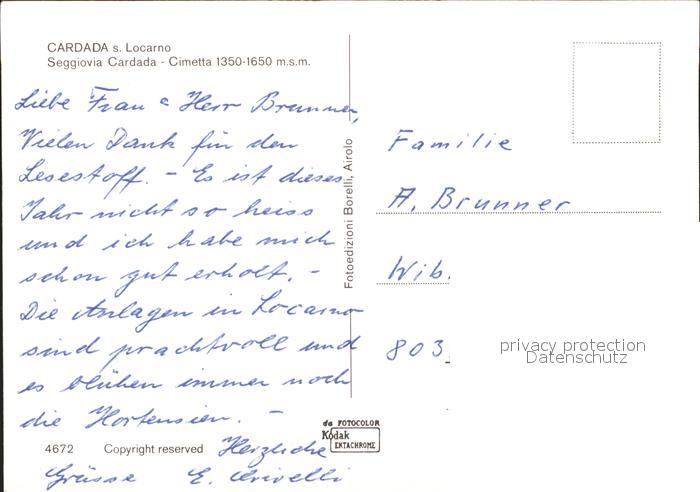 CARDADA s. Locarno
Seggiovia Cardada - Cimetta 1350-1650 m.s.m.
Liebe Frau & Herr Brunner,
Vielen Dank für den
Lesestoff. - Es ist dieses
Jahr nicht so heiss
und ich habe mich
schon gut erholt. -
Die Anlagen in Locarno
sind prachtvoll und
es blühen immer noch
die Hortensien. -
Herzliche
Grüsse E. Crivelli
4672 Copyright reserved
da FOTOCOLOR
Kodak
EKTACHROME
Fotoedizioni Borelli, Airolo
Familie
A. Brunner
Wib.
803
privacy protection
Datenschutz